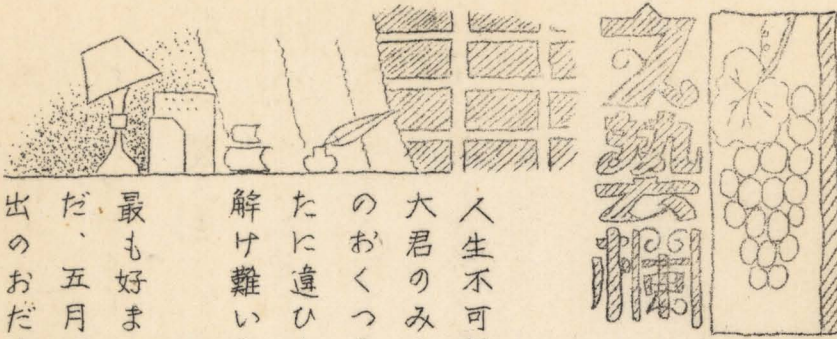 文藝欄
人生不可
大君のみ
のおくつ
たに違ひ
解け難い
最も好ま
だ、五月
出のおだ